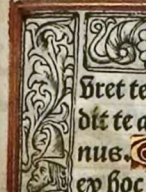 bret te
dit te a
nus.
ex hoc